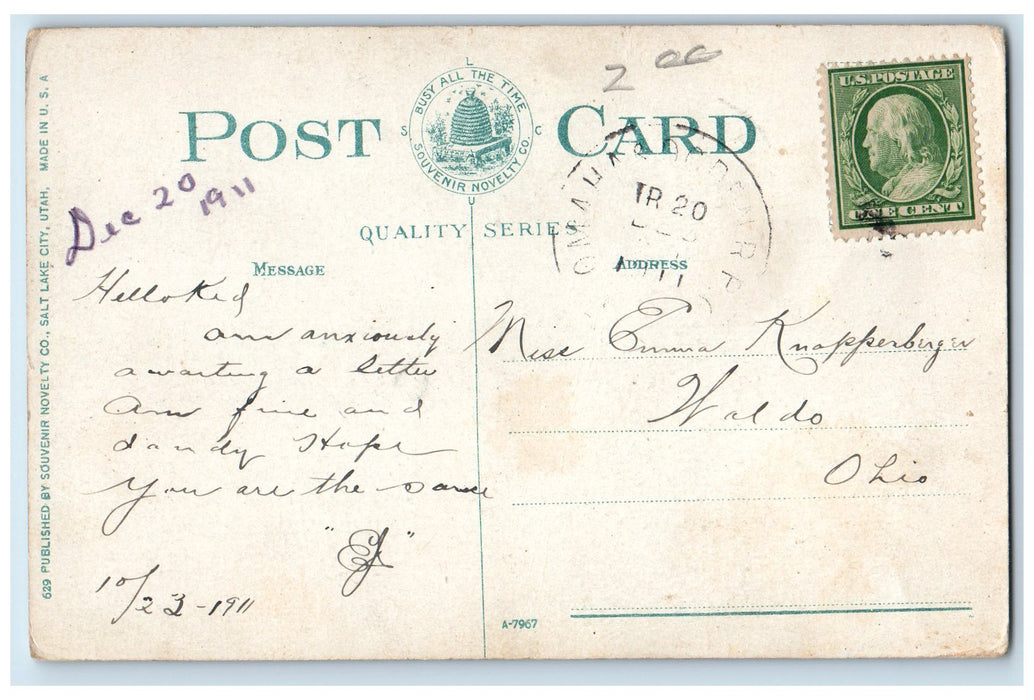 2 00
U.S. POSTAGE
ONE CENT
POST CARD
BUSY ALL THE TIME
SOUVENIR NOVELTY CO.
L
S C
U
QUALITY SERIES
Dec 20
1911
OMAHA
TR 20
R.P.O
MESSAGE
ADDRESS
Hello Kid
am anxiously
awaiting a letter
Am fine and
dandy Hope
You are the same
10/23-1911
Miss Emma Knapperberger
Waldo
Ohio
A-7967
629 PUBLISHED BY SOUVENIR NOVELTY CO., SALT LAKE CITY, UTAH, MADE IN U. S. A